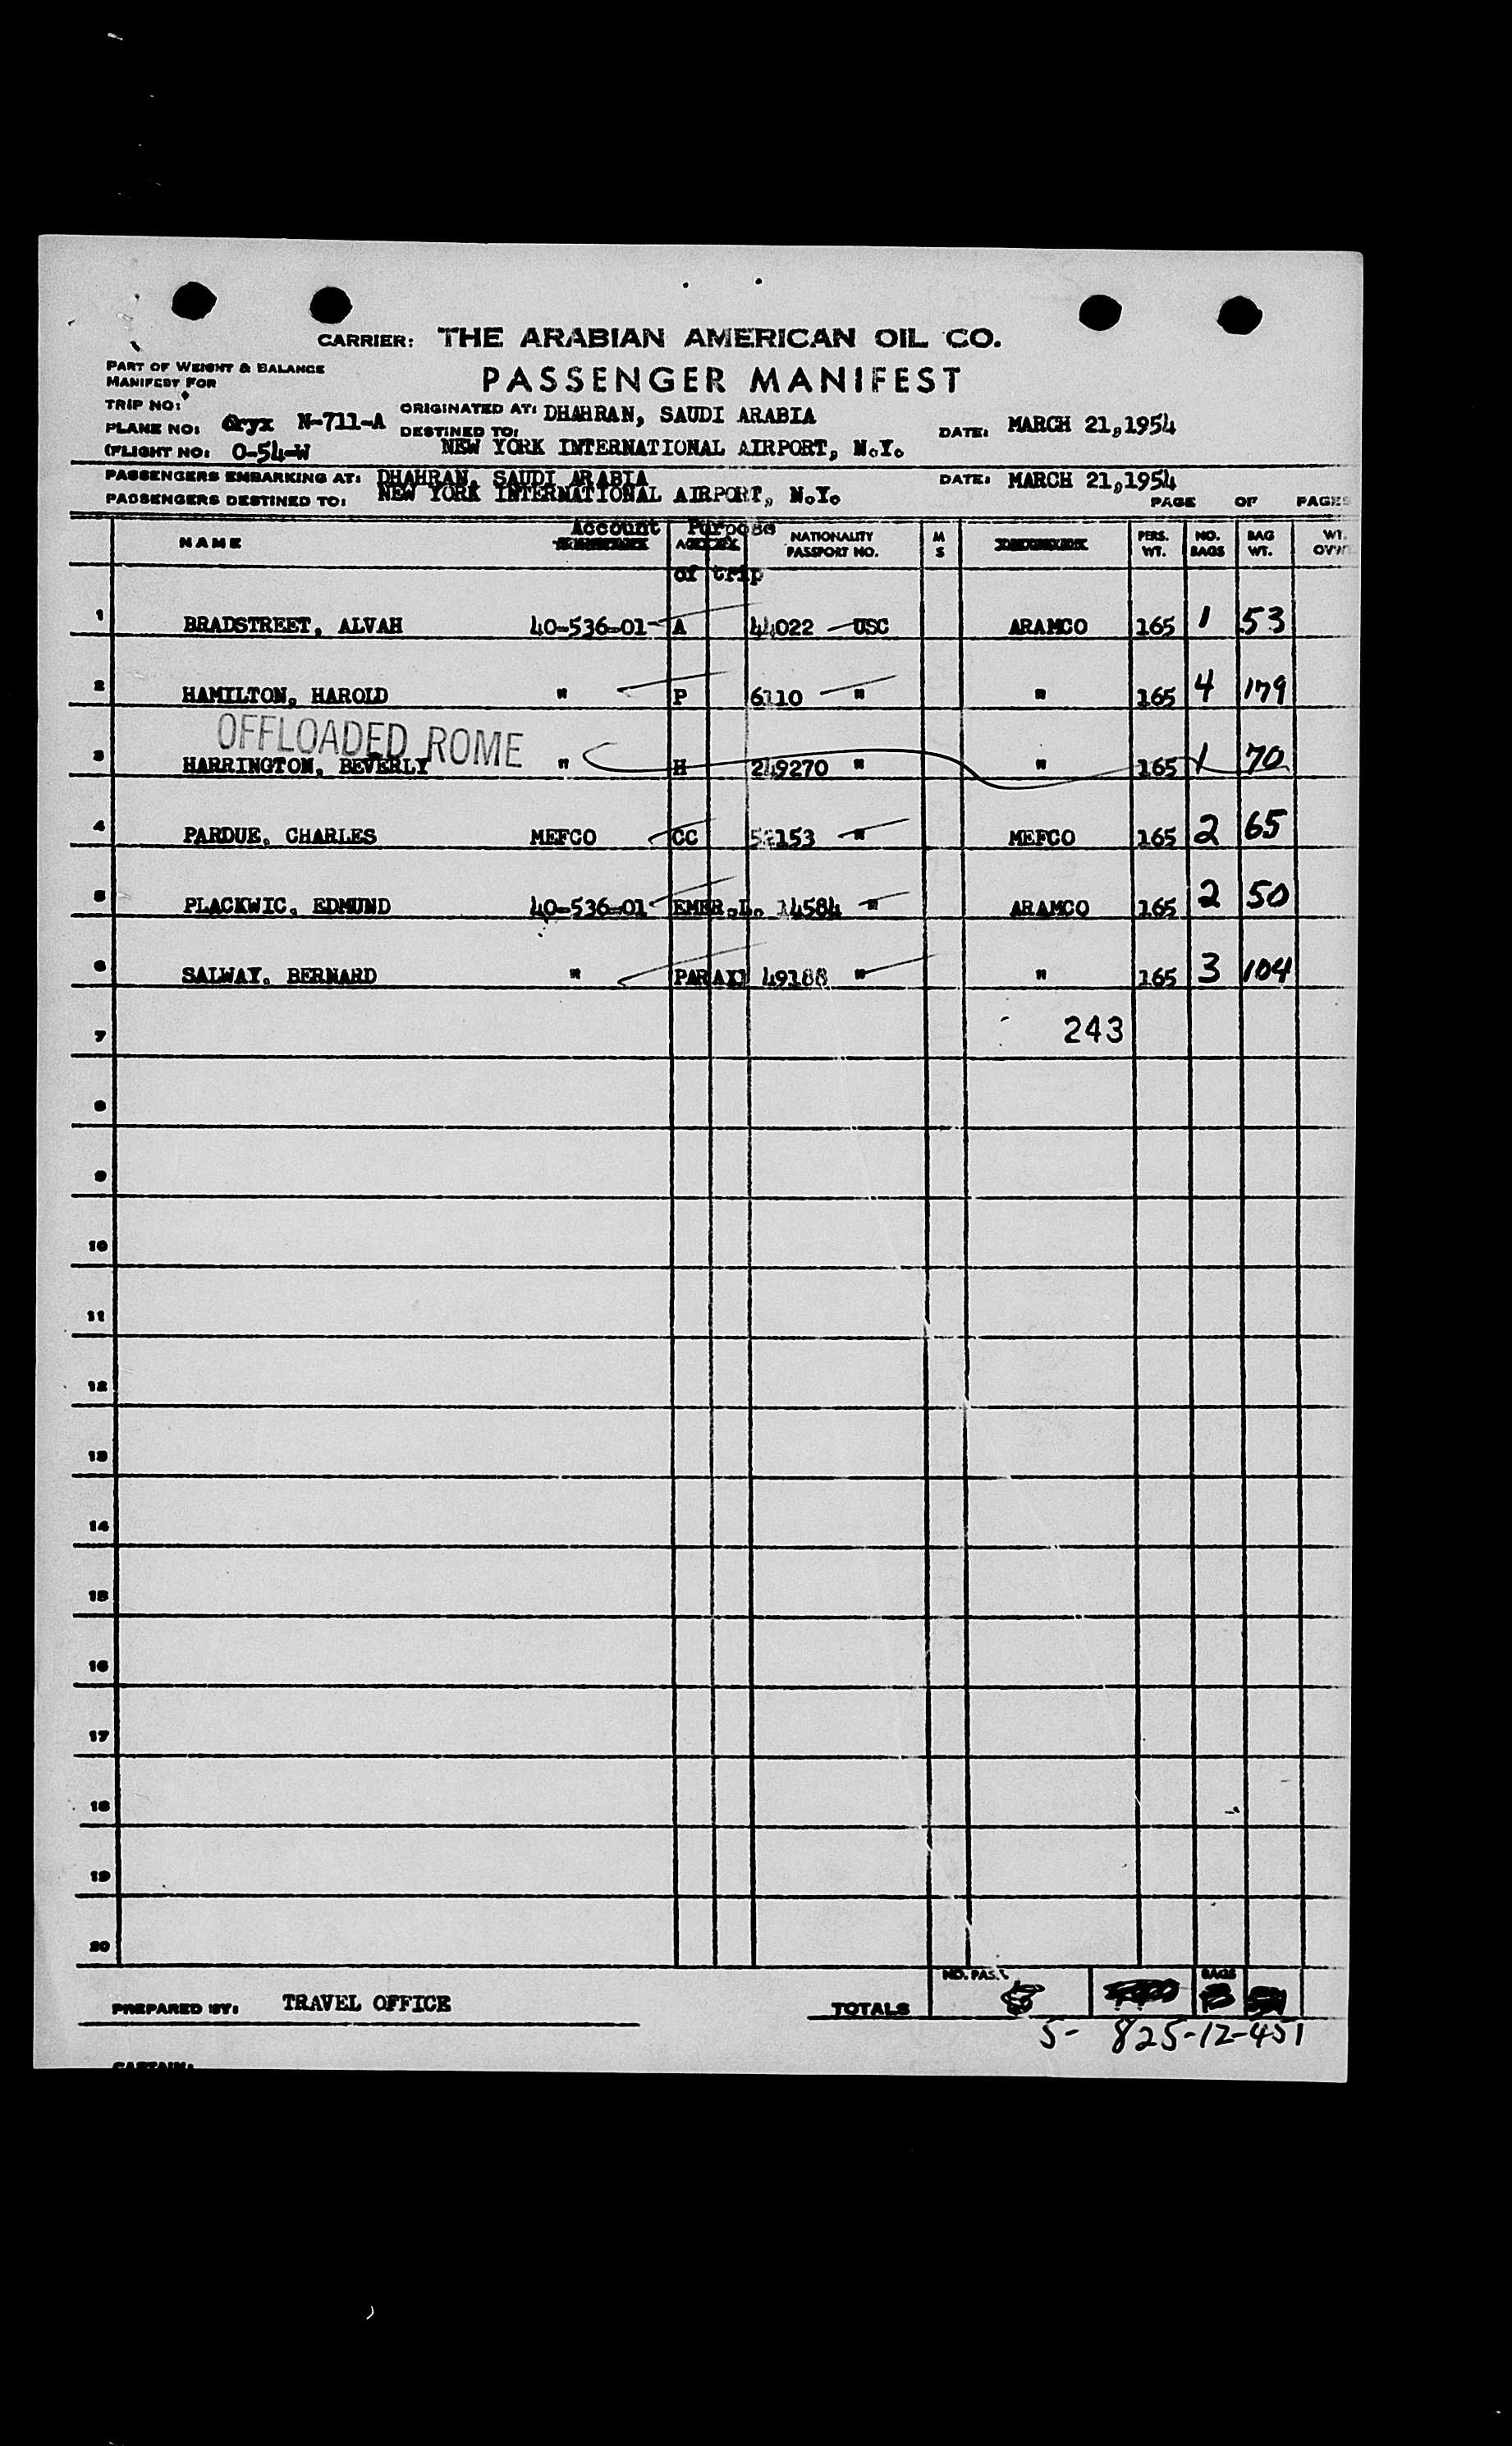 CARRIER: THE ARABIAN AMERICAN OIL CO.
PART OF WEIGHT & BALANCE
MANIFEST FOR
PASSENGER MANIFEST
TRIP NO:
PLANE NO: Oryx N-711-A
ORIGINATED AT: DHAHRAN, SAUDI ARABIA
DATE: MARCH 21, 1954
FLIGHT NO: O-54-W
DESTINED TO: NEW YORK INTERNATIONAL AIRPORT, N.Y.
PASSENGERS EMBARKING AT: DHAHRAN, SAUDI ARABIA DATE: MARCH 21, 1954
PASSENGERS DESTINED TO: NEW YORK INTERNATIONAL AIRPORT, N.Y. PAGE OF PAGES
NAME Account Purpose of trip NATIONALITY PASSPORT NO. M S PERS. WT. NO. BAGS BAG WT. WT.
1 BRADSTREET, ALVAH 40-536-01 A 44022 USC ARAMCO 165 1 53
2 HAMILTON, HAROLD " P 6110 " " 165 4 179
OFFLOADED ROME
3 HARRINGTON, BEVERLY " H 249270 " " 165 1 70
4 PARDUE, CHARLES MEFCO CC " MEFCO 165 2 65
5 PLACKWIC, EDMUND 40-536-01 EMER.L. 14584 " ARAMCO 165 2 50
6 SALWAY, BERNARD " 49188 " " 165 3 104
7 243
8
9
10
11
12
13
14
15
16
17
18
19
20
PREPARED BY: TRAVEL OFFICE TOTALS NO. PASS. BAGS
5- 825-12-451
CAPTAIN: